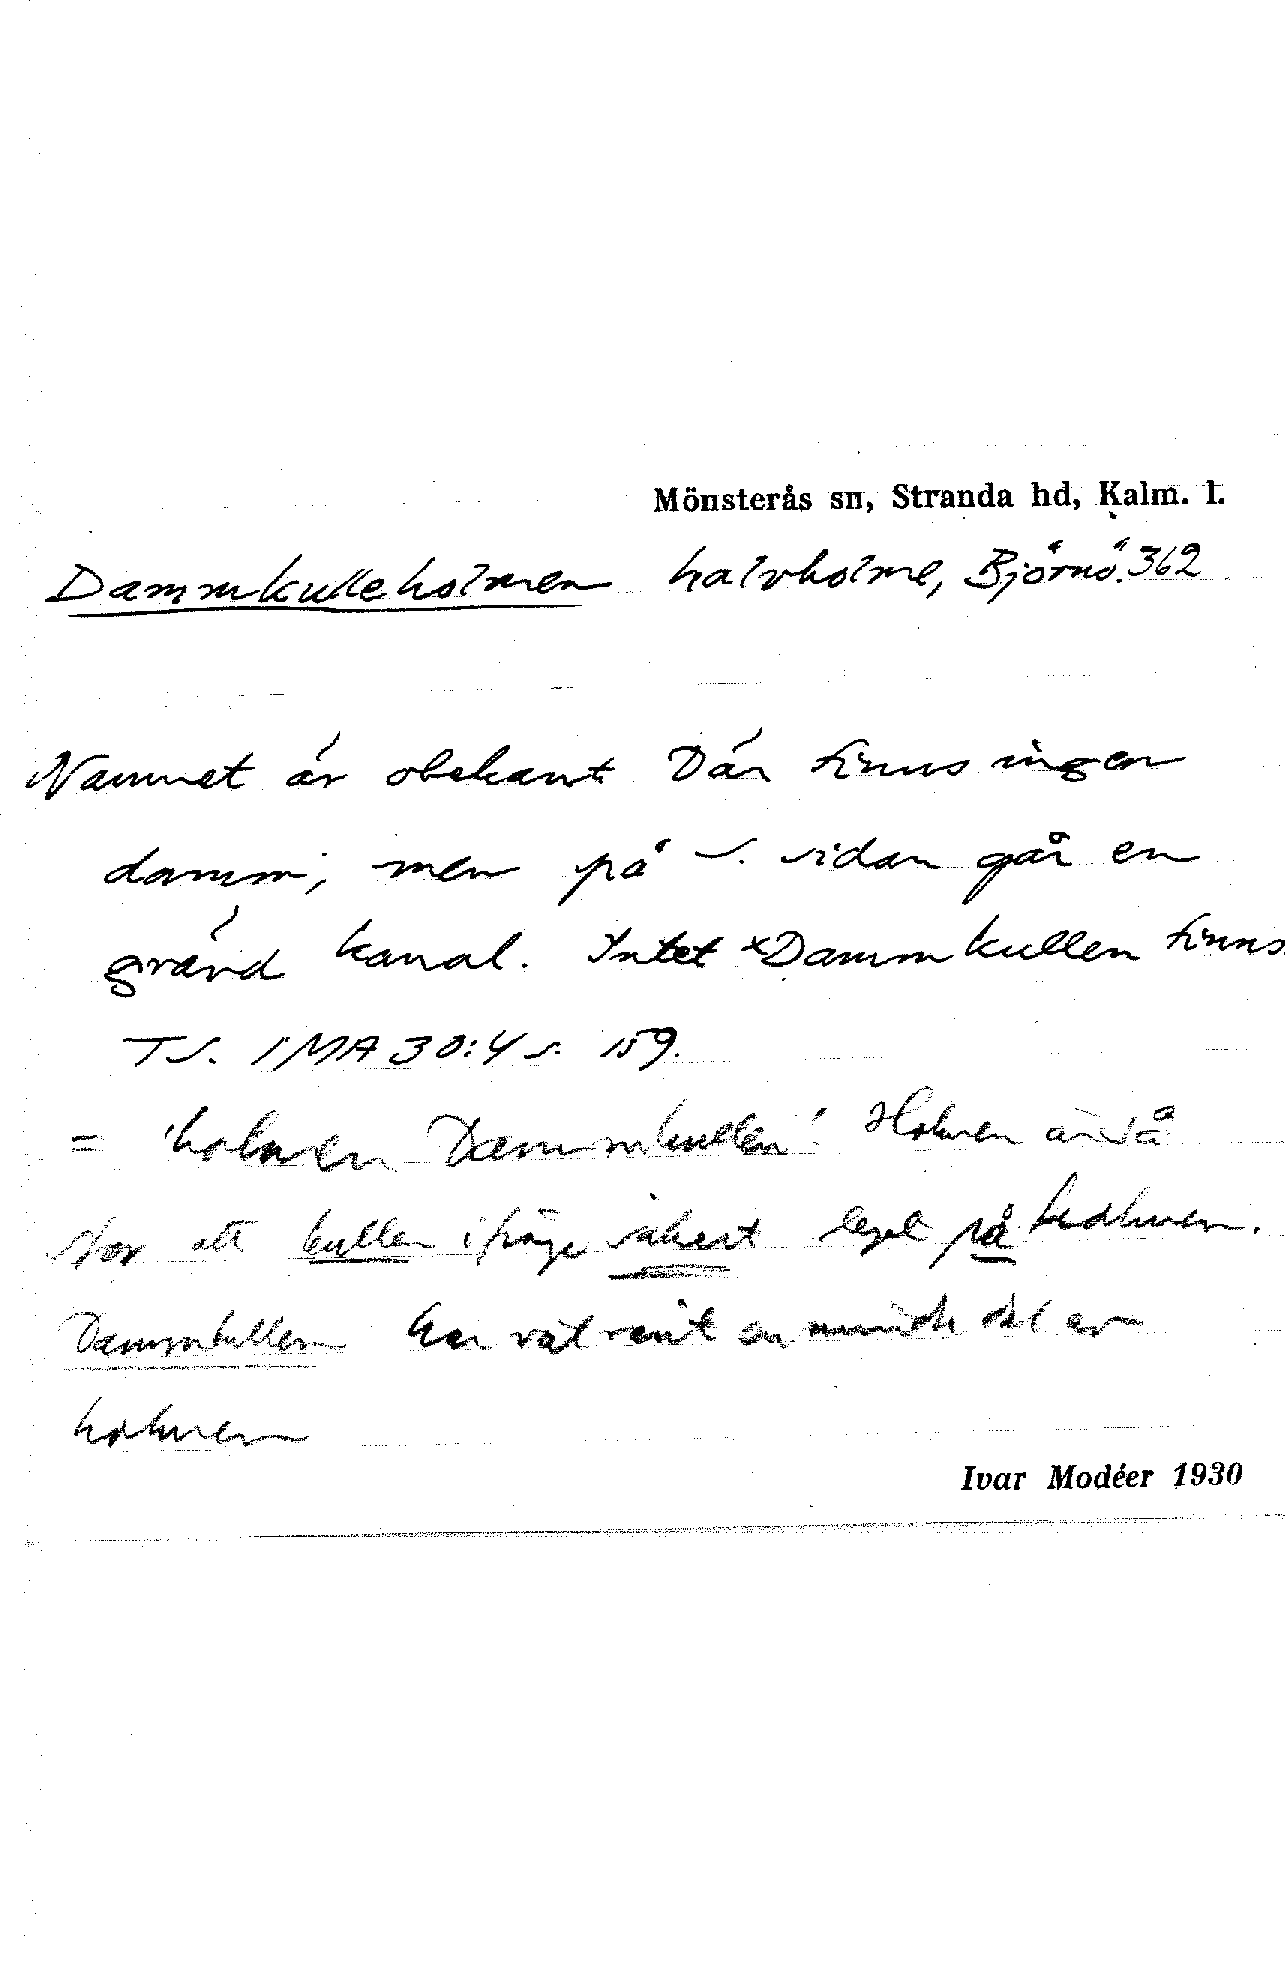 Mönsterås sn, Stranda hd, Kalm. l.
Dammkulleholmen halvholme, Björnö. 362
Namnet är obekant Där finns ingen
damm, men på S. sidan går en
grävd kanal. Intet ×Dammkullen finns
TS. IMA 30:4 s. 159.
= 'holmen Dammkullen'. Holmen är så
stor att kullen ifråga säkert legat på holmen.
Dammkullen har väl varit en mindre del av
holmen
Ivar Modéer 1930